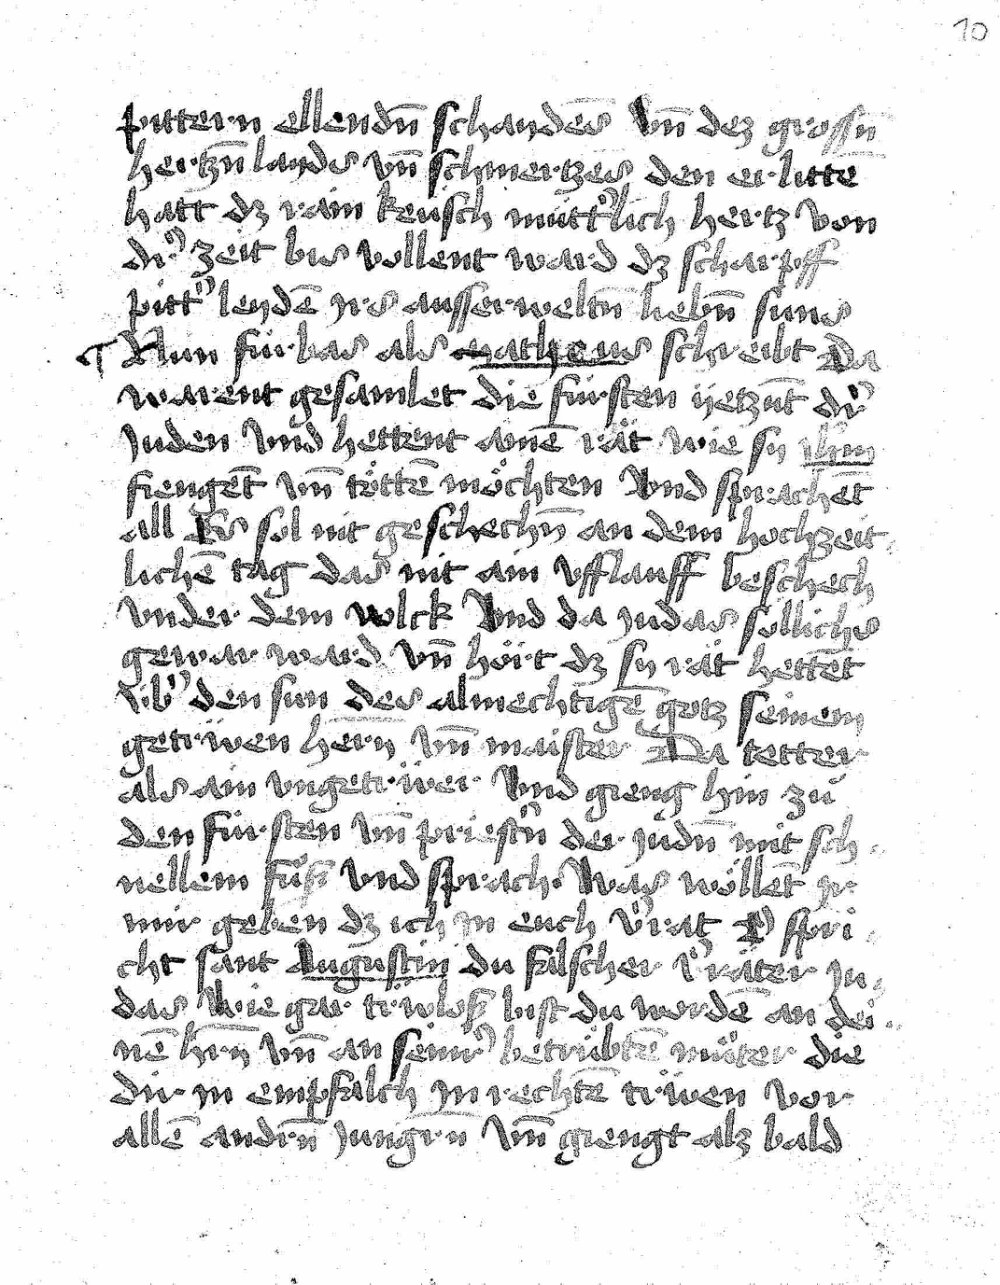 10
pittern ellendn̄ schandes Vn̄ dez grossn̄
hertzn̄ lands vn̄ schmertzes den erlittē
hatt dz rain keüsch müttʾlich hertz von
dirʾ zeit bis vollent ward dz scharpff
pittʾ leydē jrs ausserweltn̄ liebn̄ suns
¶ Nun für bas als matheus schreibt Da
warent gesamlet die fürsten iȷetzūt dʾ
Juden Vnd hettent ainē rät wie sy ihm
fiengēt vn̄ töttē möchten Vnd sprachēt
all Es sol nit geschechn̄ an dem hochzeit
lichē tag das nit ain Vfflauff beschech
Vnder dem volck Vnd da judas sölliches
gewar ward vn̄ hört dz sy rät hettēt
übʾ den sun des almechtigē gotz seinem
getrüwen hern vn̄ maister Da tetter
als ain vngetrüwer Vnd gieng hin zů
den fürsten vn̄ priestʾn der judn̄ mit sch
nellem fůß Vnd sprach. Was wöllēt jr
mir geben dz ich jn euch vʾrat O spri
cht sant Augustin du falscher vʾräter ju
das Wie gar trüwloß bist du wordē an dei
nē hrn̄ vn̄ an seinrʾ betrübtē můter die
dir jn empfalch jn rechtē trüwen vor
allē andrn̄ jungrn vn̄ giengt alz bald